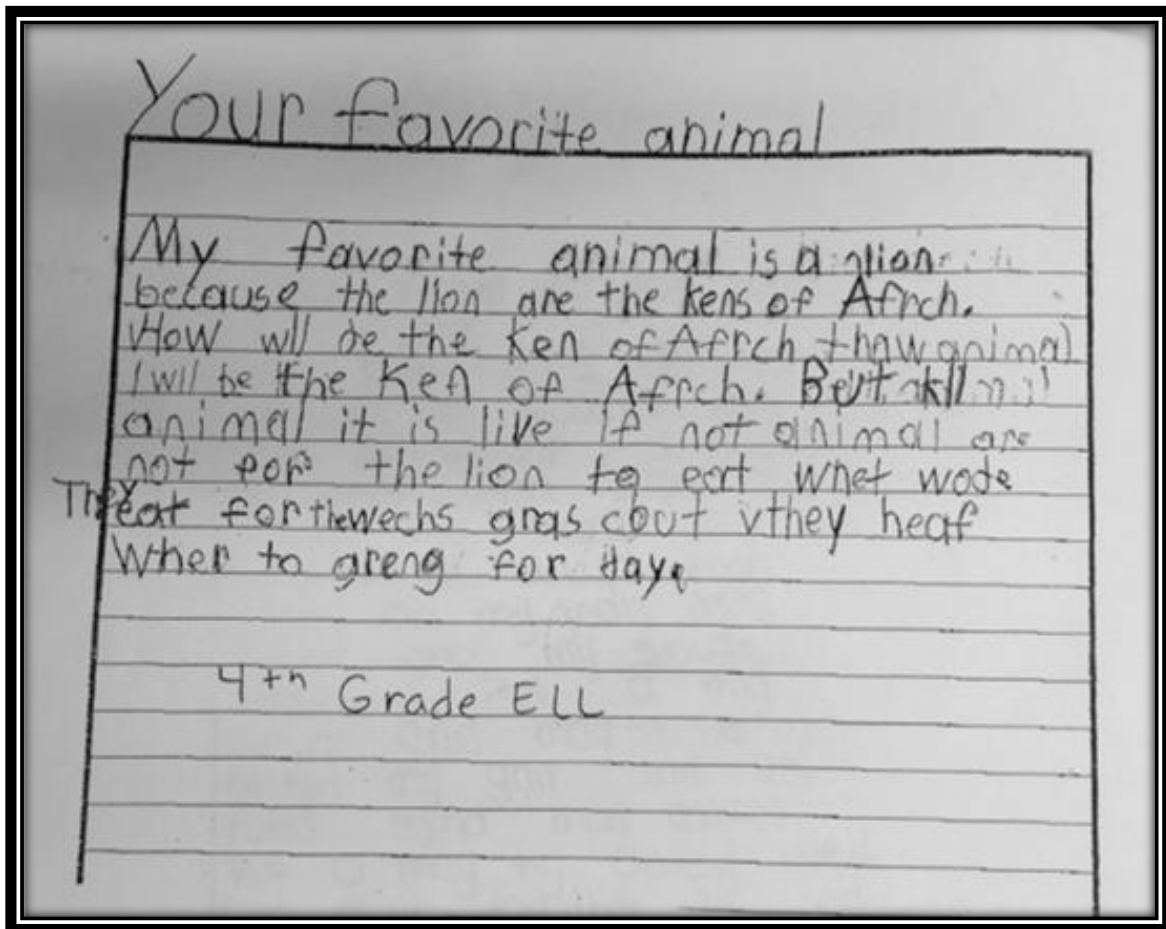 Your favorite animal
My favorite animal is a lion
because the lion are the kens of Afrch.
How wll be the Ken of Afrch thaw animal
I wil be the Ken of Afrch. But
animal it is live if not animal are
not for the lion to eat whet wode
They eat for the wechs gras cout they heaf
Wher to greng for day.
4th Grade ELL